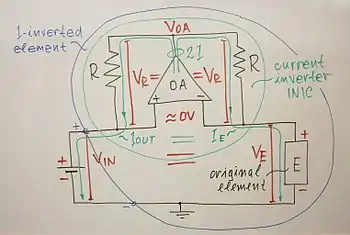 I-inverted
element
VOA
2I
R
VR=
=VR
R
OA
+
-
current
inverter
INIC
≈0V
+
IOUT
IE
+
+
-
VIN
VE
E
original
element
-
-